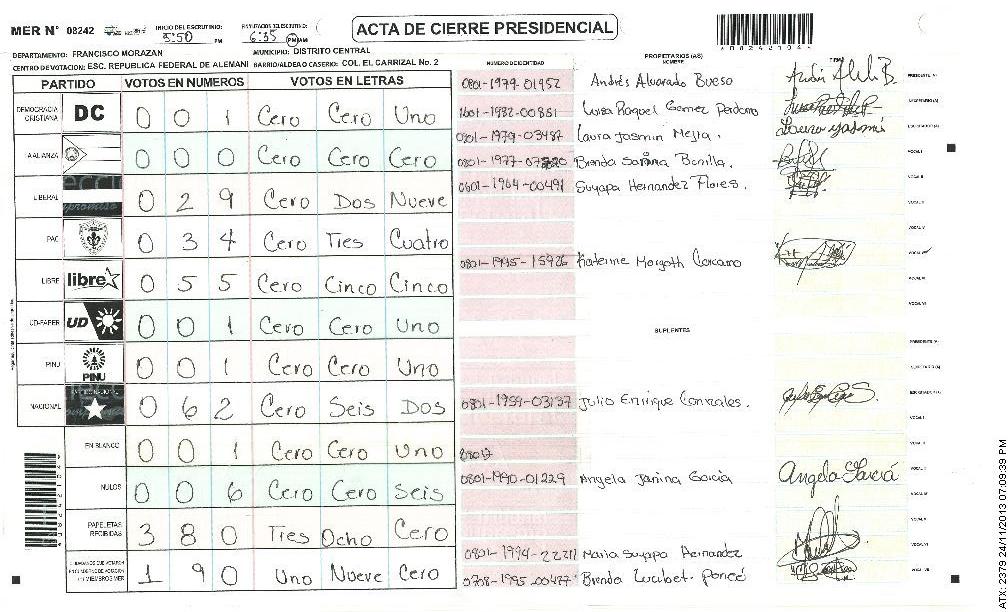 MER N° 08242 INICIO DEL ESCRUTINIO: 5:50 PM 6:35 PM ACTA DE CIERRE PRESIDENCIAL
DEPARTAMENTO: FRANCISCO MORAZAN MUNICIPIO: DISTRITO CENTRAL
CENTRO DE VOTACION: ESC. REPUBLICA FEDERAL DE ALEMANI BARRIO/ALDEA O CASERIO: COL. EL CARRIZAL No. 2
NUMERO DE IDENTIDAD PROPIETARIOS (AS) NOMBRE FIRMA
PARTIDO VOTOS EN NUMEROS VOTOS EN LETRAS
DEMOCRACIA CRISTIANA DC 0 0 1 Cero Cero Uno
ALIANZA 0 0 0 Cero Cero Cero
LIBERAL 0 2 9 Cero Dos Nueve
PAC 0 3 4 Cero Tres Cuatro
LIBRE libre 0 5 5 Cero Cinco Cinco
UD-FAPER UD 0 0 1 Cero Cero Uno
PINU PINU 0 0 1 Cero Cero Uno
NACIONAL 0 6 2 Cero Seis Dos
EN BLANCO 0 0 1 Cero Cero Uno
NULOS 0 0 6 Cero Cero Seis
PAPELETAS RECIBIDAS 3 8 0 Tres Ocho Cero
1 9 0 Uno Nueve Cero
0801-1979-01952 Andrés Alvarado Bueso PRESIDENTE (A)
1601-1982-00851 Luisa Raquel Gomez Perdomo SECRETARIO (A)
0801-1979-03487 Laura Jasmin Mejia. ESCRUTADOR (A)
0801-1977-07220 Brenda Bonilla. VOCAL I
0601-1964-00491 Suyapa Hernandez Flores. VOCAL II
0801-1995-15926 Katerine Margoth Carcamo
SUPLENTES
PRESIDENTE (A)
SECRETARIO (A)
0801-1959-03137 Julio Enrique Gonzales. ESCRUTADOR (A)
VOCAL I
VOCAL II
0801-1990-01229 Angela Janina Garcia Angela Garciá
0801-1994-22211 Maria Suyapa Hernandez
0708-1995-00477 Brenda Ponce
ATX: 2379 24/11/2013 07:09:39 PM